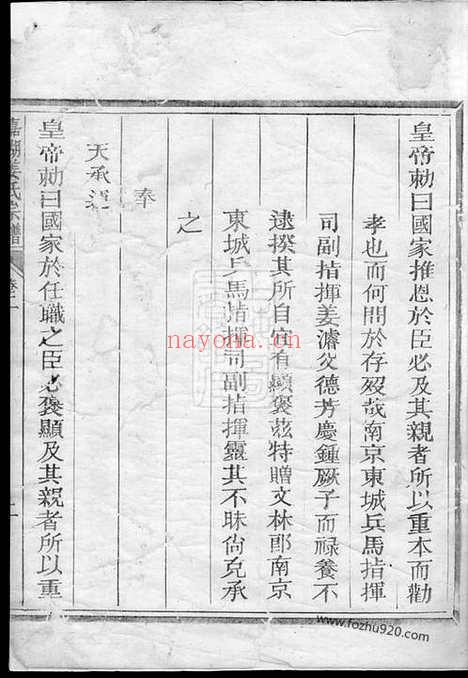 皇帝勅曰國家推恩於臣必及其親者所以重本而勸
孝也而何間於存殁哉南京東城兵馬指揮
司副指揮姜濬父德芳慶鍾厥子而禄養不
逮揆其所自宜有顯褒茲特贈文林郎南京
東城兵馬指揮司副指揮靈其不昧尚克承
之
奉
天承運
皇帝勅曰國家於任職之臣必褒顯及其親者所以重
姜氏宗譜
卷之一
二
nayona.cn
www.fozhu920.com